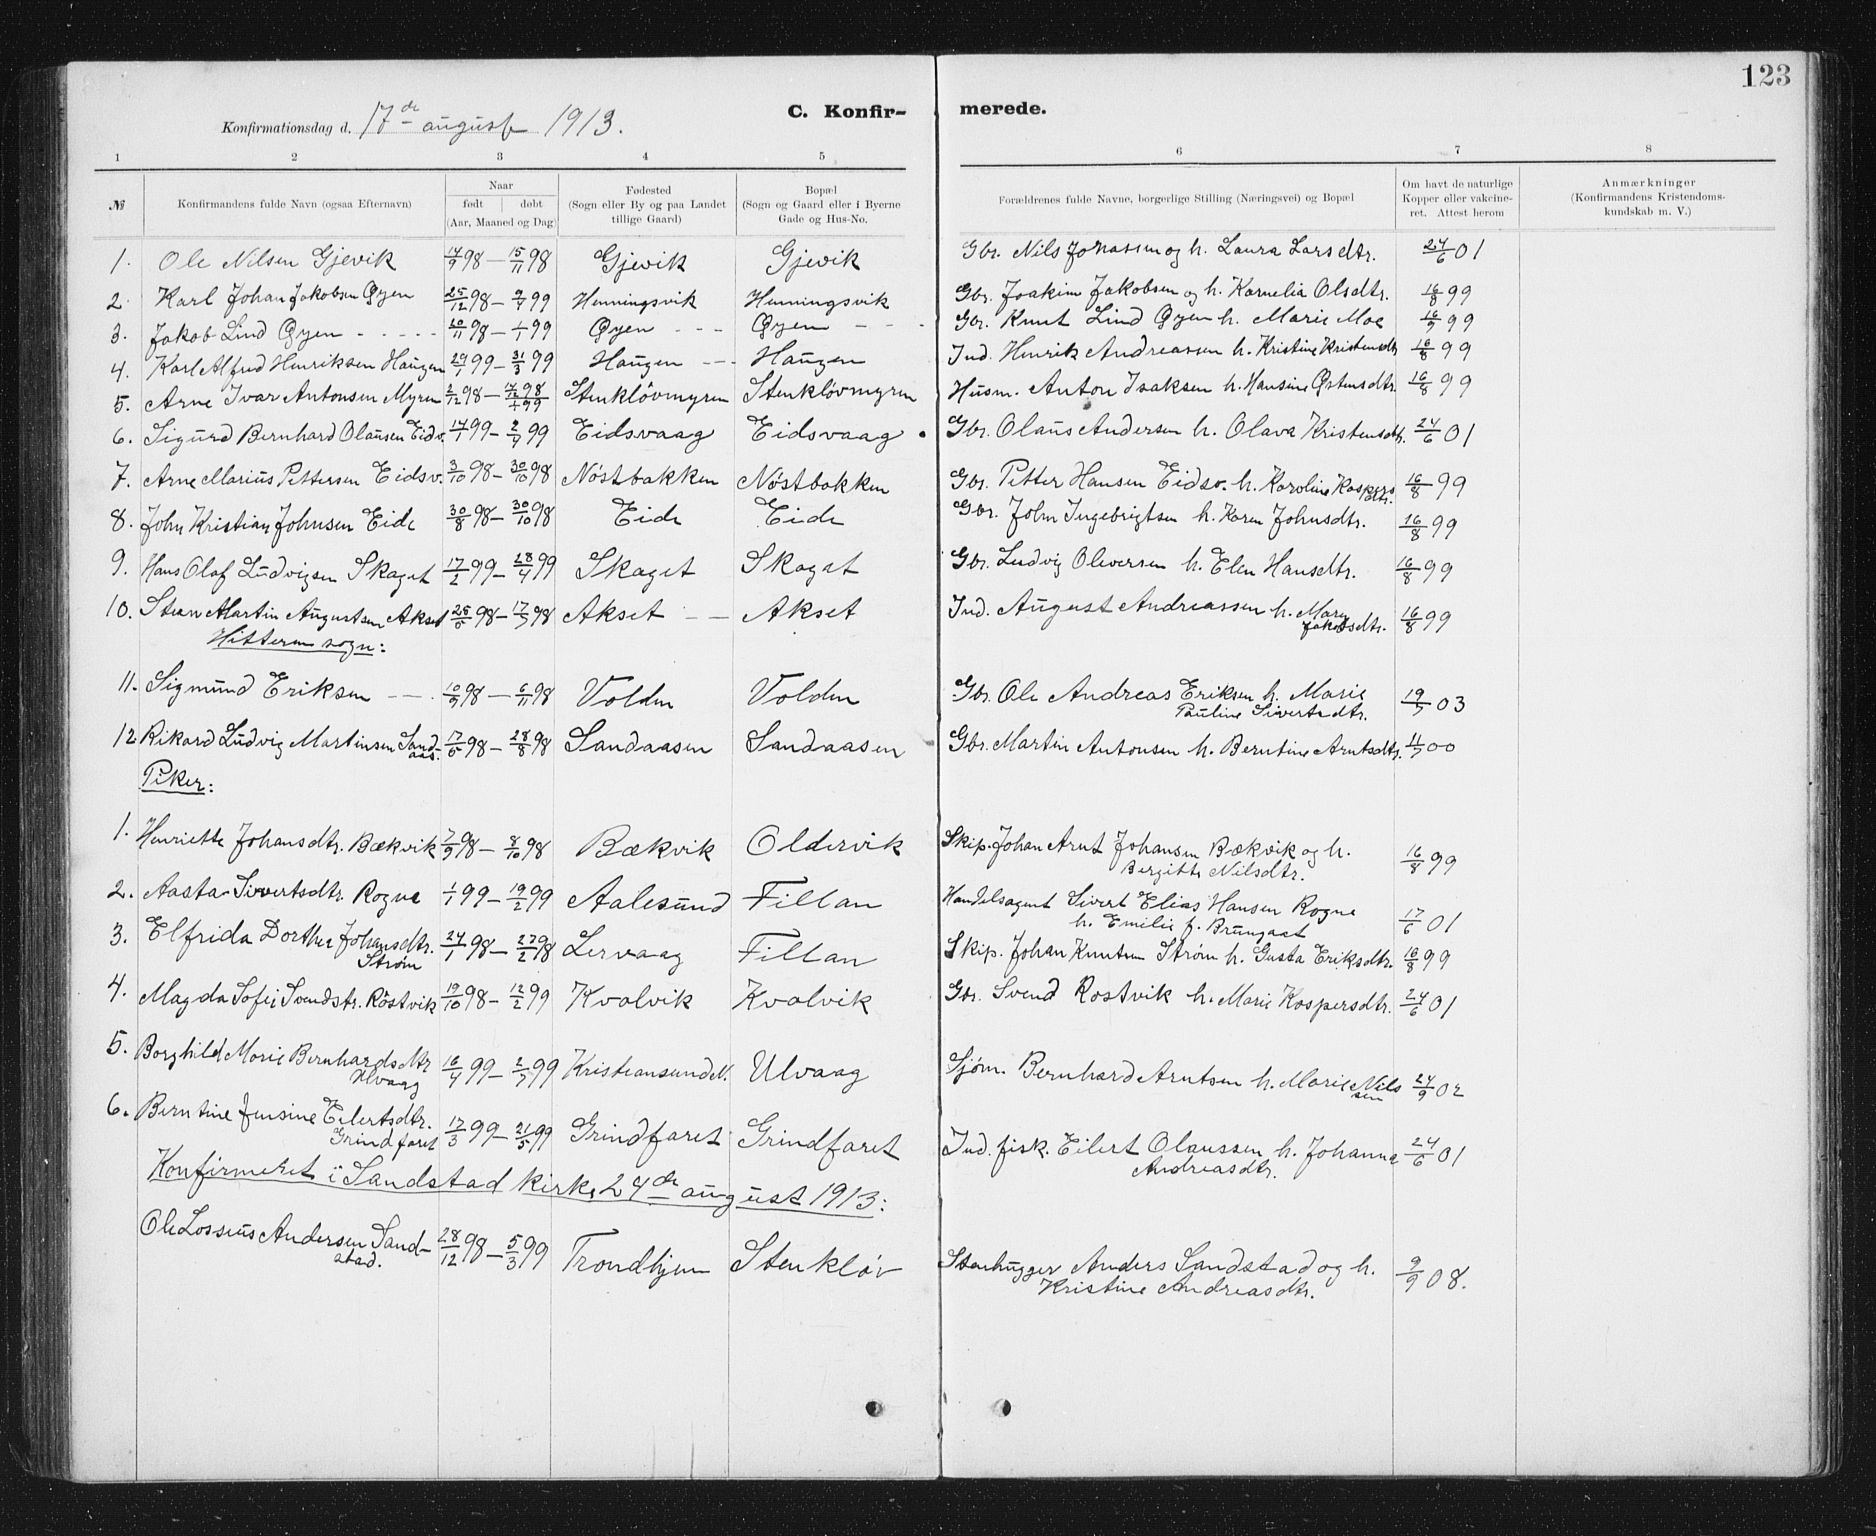 123
C. Konfir- merede.
Konfirmationsdag d. 17de august 1913.
1 2 3 4 5 6 7 8
№ Konfirmandens fulde Navn (ogsaa Efternavn) Naar født døbt (Aar, Maaned og Dag) Fødested (Sogn eller By og paa Landet tillige Gaard) Bopæl (Sogn og Gaard eller i Byerne Gade og Hus-No. Forældrenes fulde Navne, borgerlige Stilling (Næringsvei) og Bopæl Om havt de naturlige Kopper eller vakcineret. Attest herom Anmærkninger (Konfirmandens Kristendomskundskab m. V.)
1. Ole Nilsen Gjevik 14/9 98 — 15/11 98 Gjevik Gjevik Gbr. Nils Jonassen og h. Laura Larsdtr. 24/6 01
2. Karl Johan Jakobsen Øyen 25/12 98 — 9/4 99 Henningsvik Henningsvik Gbr. Joakim Jakobsen og h. Kornelia Olsdtr. 16/8 99
3. Jakob Lind Øyen - - - - - 20/11 98 — 1/1 99 Øyen - - - Øyen - - - Gbr. Knut Lind Øyen h. Marie Moe 16/9 99
4. Karl Alfred Henriksen Haugen 29/1 99 — 31/3 99 Haugen - - Haugen Ind. Henrik Andreassen h. Kristine Kristensdtr 16/8 99
5. Arne Ivar Antonsen Myren 2/12 98 — 1/1 99 Stenkløvmyren Stenkløvmyren Husm. Anton Isaksen h. Hansine Østensdtr. 16/8 99
6. Sigurd Bernhard Olausen Eidsv. 14/1 99 — 2/7 99 Eidsvaag Eidsvaag Gbr. Olaus Andersen h. Olava Kristensdtr. 24/6 01
7. Arne Marius Pettersen Eidsv. 3/10 98 — 30/10 98 Nøstbakken Nøstbakken Gbr. Petter Hansen Eidsv. h. Karoline Kaspersdtr. 16/8 99
8. John Kristian Johnsen Eide 30/8 98 — 30/10 98 Eide Eide Gbr. John Ingebrigtsen h. Karen Johnsdtr. 16/8 99
9. Hans Olaf Ludvigsen Skaget 17/2 99 — 28/4 99 Skaget Skaget Gbr. Ludvig Oliversen h. Elen Hansdtr. 16/8 99
10. Stean Martin Augustsen Akset 25/5 98 — 17/7 98 Akset — — Akset Ind. August Andreassen h. Mary Jakobsdtr. 16/8 99
Hitteren sogn:
11. Sigmund Eriksen — — . 10/9 98 — 6/11 98 Volden Volden Gbr. Ole Andreas Eriksen h. Marie Pauline Sivertsdtr. 19/7 03
12 Rikard Ludvig Martinsen Sandaas. 17/5 98 — 28/8 98 Sandaasen Sandaasen Gbr. Martin Antonsen h. Berntine Arntsdtr. 11/7 00
Piker:
1. Henriette Johansdtr. Bækvik 7/9 98 — 8/10 98 Bækvik Oldervik Skip. Johan Arnt Johansen Bækvik og h. Bergitte Nilsdtr. 16/8 99
2. Aasta Sivertsdtr. Rogne 1/1 99 — 19/2 99 Aalesund Fillan Handelsagent Sivert Elias Hansen Rogne h. Emilie f. Brungast 17/6 01
3. Elfrida Dorthea Johansdtr. Strøm 24/1 98 — 27/2 98 Lervaag Fillan Skip. Johan Knutsen Strøm h. Gusta Eriksdtr. 16/8 99
4. Magda Sofie Svendstr. Røstvik 19/10 98 — 12/2 99 Kvalvik Kvalvik Gbr. Svend Rostvik h. Marie Kaspersdtr. 24/6 01
5. Borghild Marie Bernhardsdtr Ulvaag 16/4 99 — 2/7 99 Kristiansund N. Ulvaag Sjøm. Bernhard Arntsen h. Marie Nilssen 24/9 02
6. Berntine Jensine Eilertsdtr. Grindfaret 17/3 99 — 21/5 99 Grindfaret Grindfaret Ind. fisk. Eilert Olaussen h. Johanna Andreasdtr. 24/6 01
Konfirmeret i Sandstad kirke 24de august 1913:
Ole Lossius Andersen Sandstad. 28/12 98 — 5/3 99 Trondhjem Stenkløv Stenhugger Anders Sandstad og h. Kristine Andreasdtr. 9/9 08.